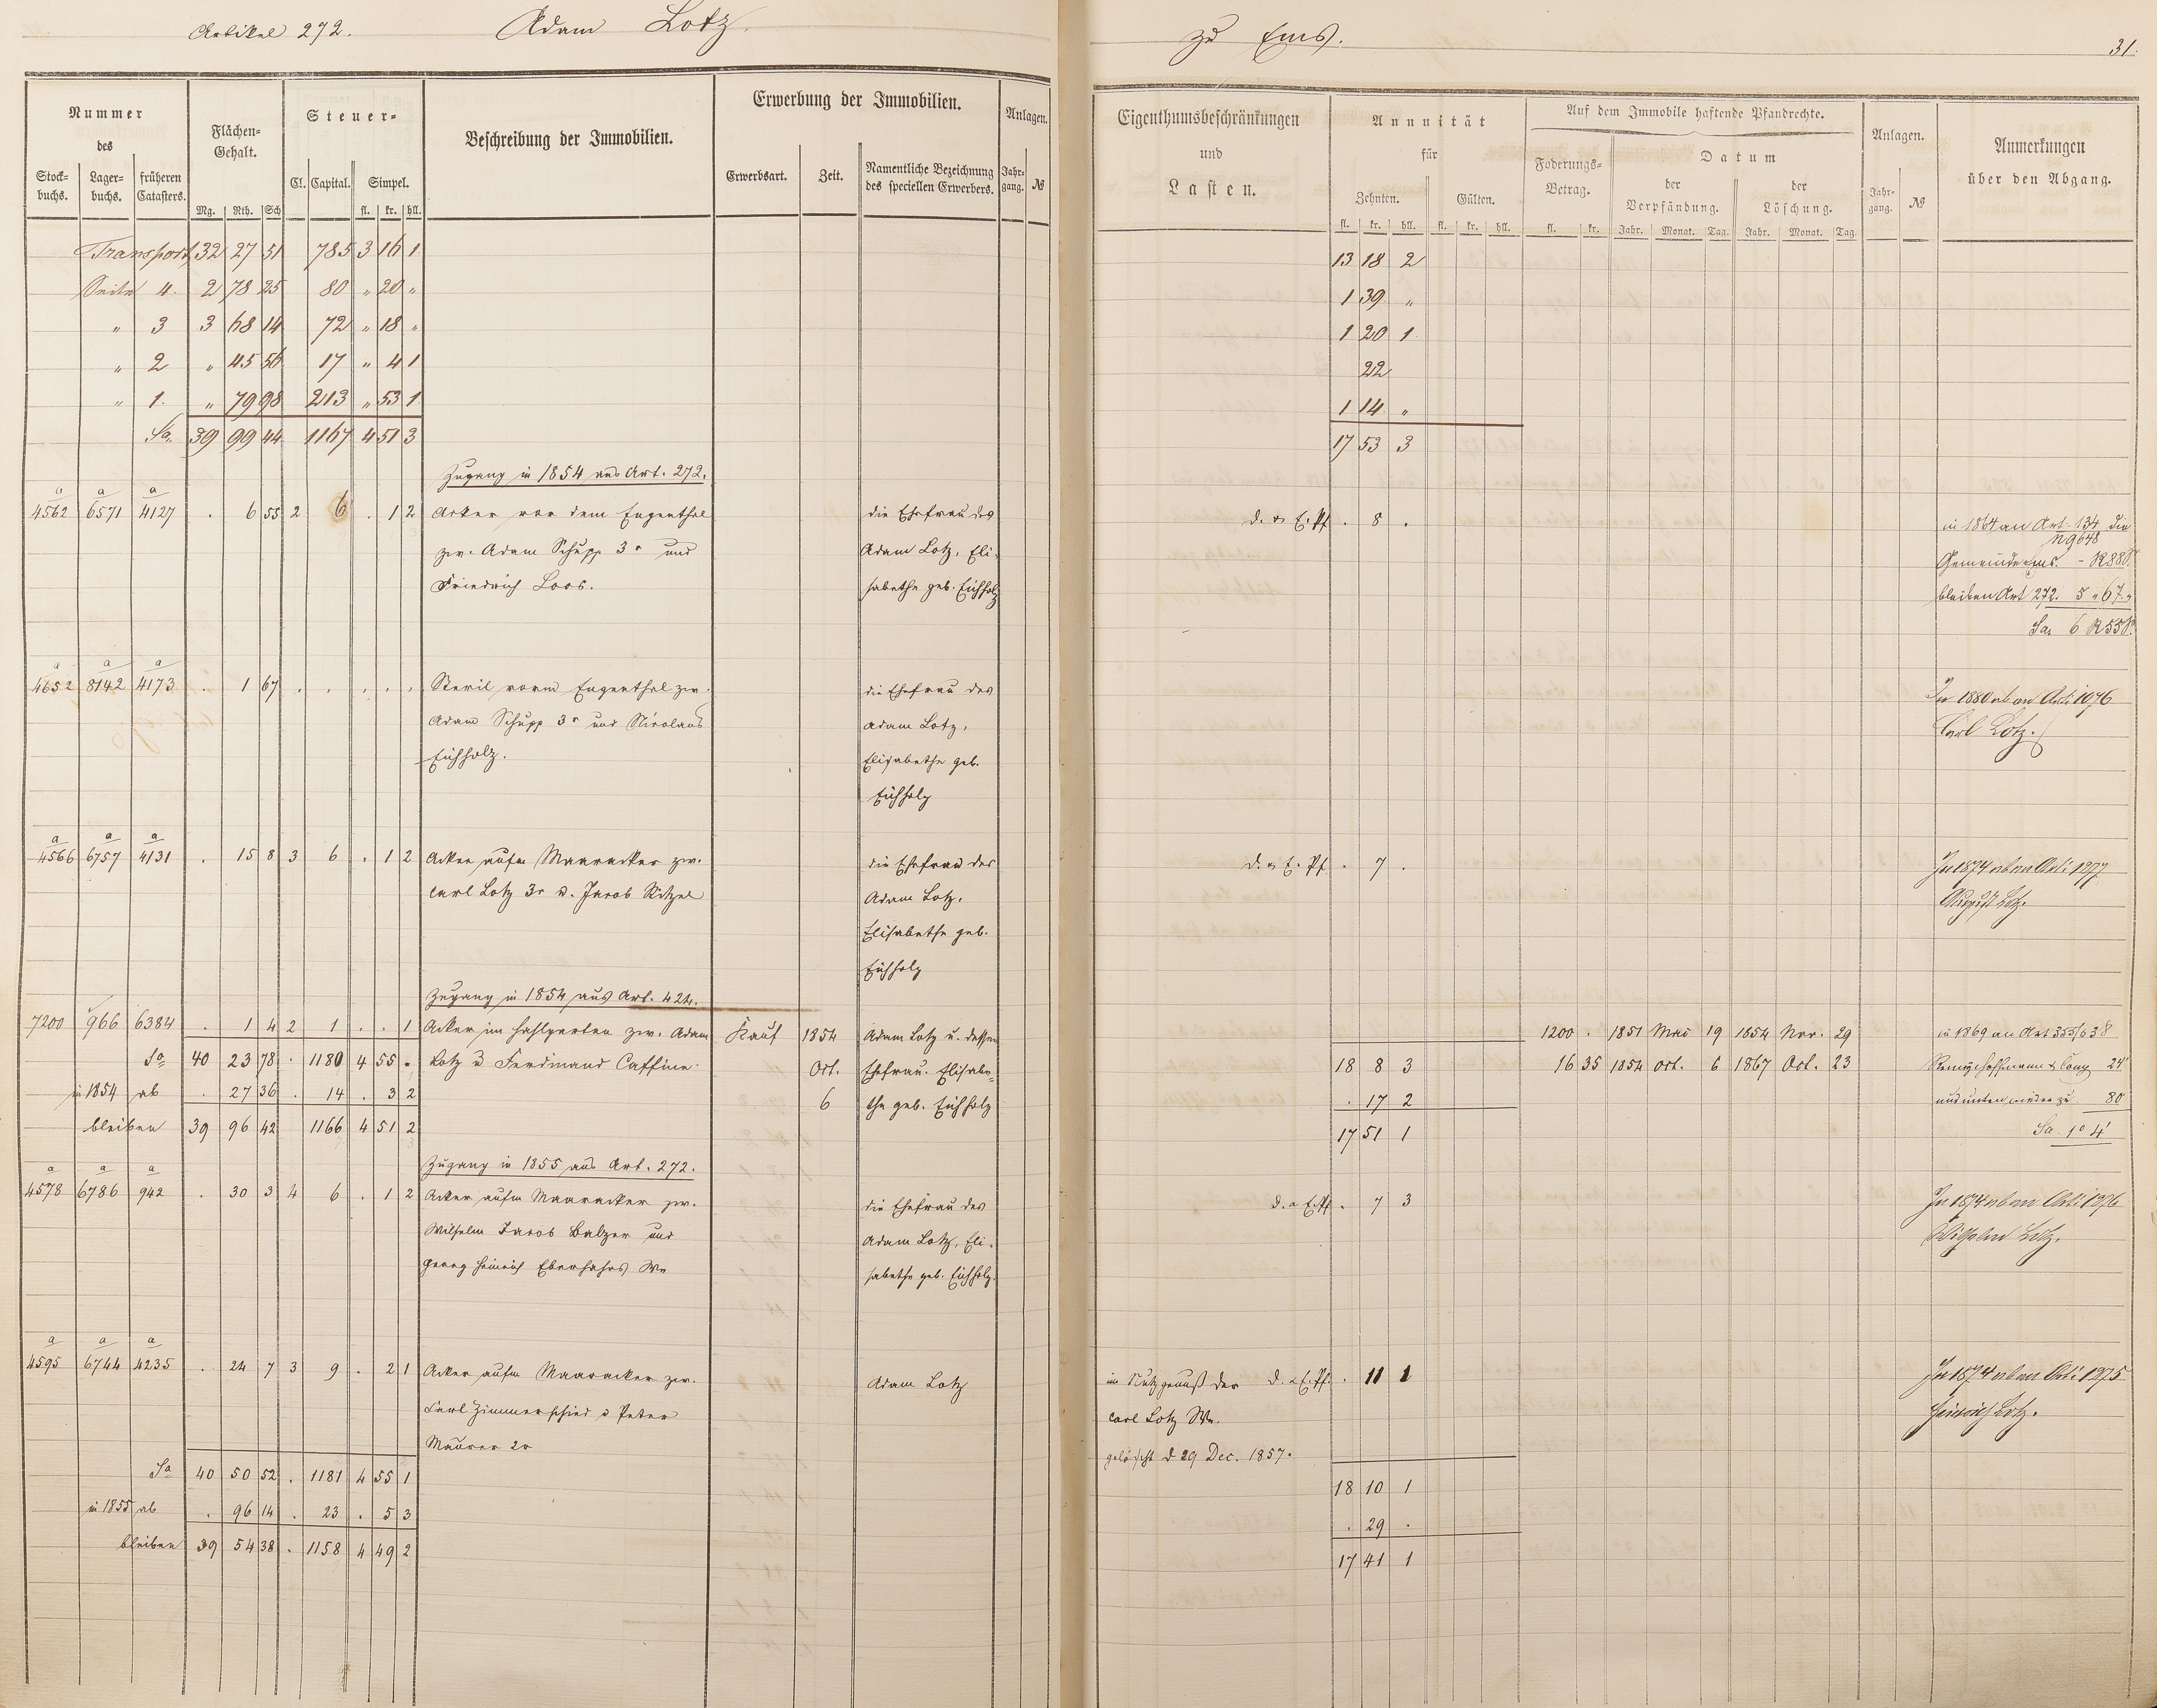 Artikel 272. Adam Lotz
zu Ems. 31.
Nummer
des
Stock-
buchs.
Lager-
buchs.
früheren
Catasters.
Flächen-
Gehalt.
Mg. Rth. Sch
Steuer-
Cl. Capital. Simpel.
fl. kr. hll.
Beschreibung der Immobilien.
Erwerbung der Immobilien.
Erwerbsart. Zeit. Namentliche Bezeichnung
des speciellen Erwerbers.
Anlagen.
Jahr-
gang. №
Eigenthumsbeschränkungen
und
Lasten.
Annuität
für
Zehnten. Gülten.
fl. kr. hll. fl. kr. hll.
Auf dem Immobile haftende Pfandrechte.
Foderungs-
Betrag.
fl. kr.
Datum
der
Verpfändung.
Jahr. Monat. Tag.
der
Löschung.
Jahr. Monat. Tag.
Anlagen.
Jahr-
gang. №
Anmerkungen
über den Abgang.
Transport 32 27 51 785 3 16 1 13 18 2
Seite 4. 2 78 25 80 " 20 " 1 39 "
" 3 3 68 14 72 " 18 " 1 20 1
" 2 " 45 56 17 " 4 1 22
" 1. " 79 98 213 " 53 1 1 14 "
Sa. 39 99 44 1167 4 51 3 17 53 3
Zugang in 1854 aus Art. 272.
a a a
4562 6571 4127 . 6 55 2 6 . 1 2 Acker vor dem Eugenthal die Ehefrau des d. & E. Pf . 8 . in 1864 an Art. 134 die
N 9648
zw. Adam Schupp 3r und Adam Lotz, Eli- Gemeinde Ems. - R 88
Friedrich Loos. sabetha geb. Eichholz bleiben Art 272. 5 " 67 "
Sa. 6 R 55
a a a
4652 8142 4173 . 1 67 . . . . . Steril vorm Eugenthal zw. die Ehefrau des In 1880 ab an Art: 1076
Adam Schupp 3r und Nicolaus Adam Lotz, Carl Lotz.
Eichholz. Elisabetha geb.
Eichholz
a a a
4566 6757 4131 . 15 8 3 6 . 1 2 Acker aufm Maaracker zw. die Ehefrau des d. & E. Pf . 7 . In 1874 ab an Art: 1277
Carl Lotz 3r u. Jacob Ritzel Adam Lotz, August Lotz.
Elisabetha geb.
Eichholz
Zugang in 1854 aus Art. 424.
7200 966 6384 . 1 4 2 1 . . 1 Acker im Hahlgarten zw. Adam Kauf 1854 Adam Lotz u. dessen 1200 . 1851 Mai 19 1854 Nov. 29 in 1869 an Art
Sa 40 23 78 . 1180 4 55 . Lotz u Ferdinand Caffine Oct. Ehefrau. Elisabe- 18 8 3 16 35 1854 Oct. 6 1867 Oct. 23 24
in 1854 ab . 27 36 . 14 . 3 2 6 tha geb. Eichholz . 17 2 und unten wieder zu 80
bleiben 39 96 42 1166 4 51 2 17 51 1 Sa 1° 4'
Zugang in 1855 aus Art. 272.
a a a
4578 6786 942 . 30 3 4 6 . 1 2 Acker aufm Maaracker zw. die Ehefrau des d. & E. Pf . 7 3 In 1874 ab an Art: 1276
Wilhelm Jacob Balzer und Adam Lotz, Eli- Wilhelm Lotz.
Georg Heinrich Eberhahns We sabetha geb. Eichholz.
a a a
4595 6744 4235 . 24 7 3 9 . 2 1 Acker aufm Maaracker zw. Adam Lotz im Nutzgenuß der d. & E. Pf. . 11 1 In 1874 ab an Art: 1275
Carl Zimmerschied u Peter Carl Lotz We. Heinrich Lotz.
Maurer 2r gelöscht d 29 Dec. 1857.
Sa 40 50 52 . 1181 4 55 1 18 10 1
in 1855 ab . 96 14 . 23 . 5 3 . 29 .
bleiben 39 54 38 . 1158 4 49 2 17 41 1